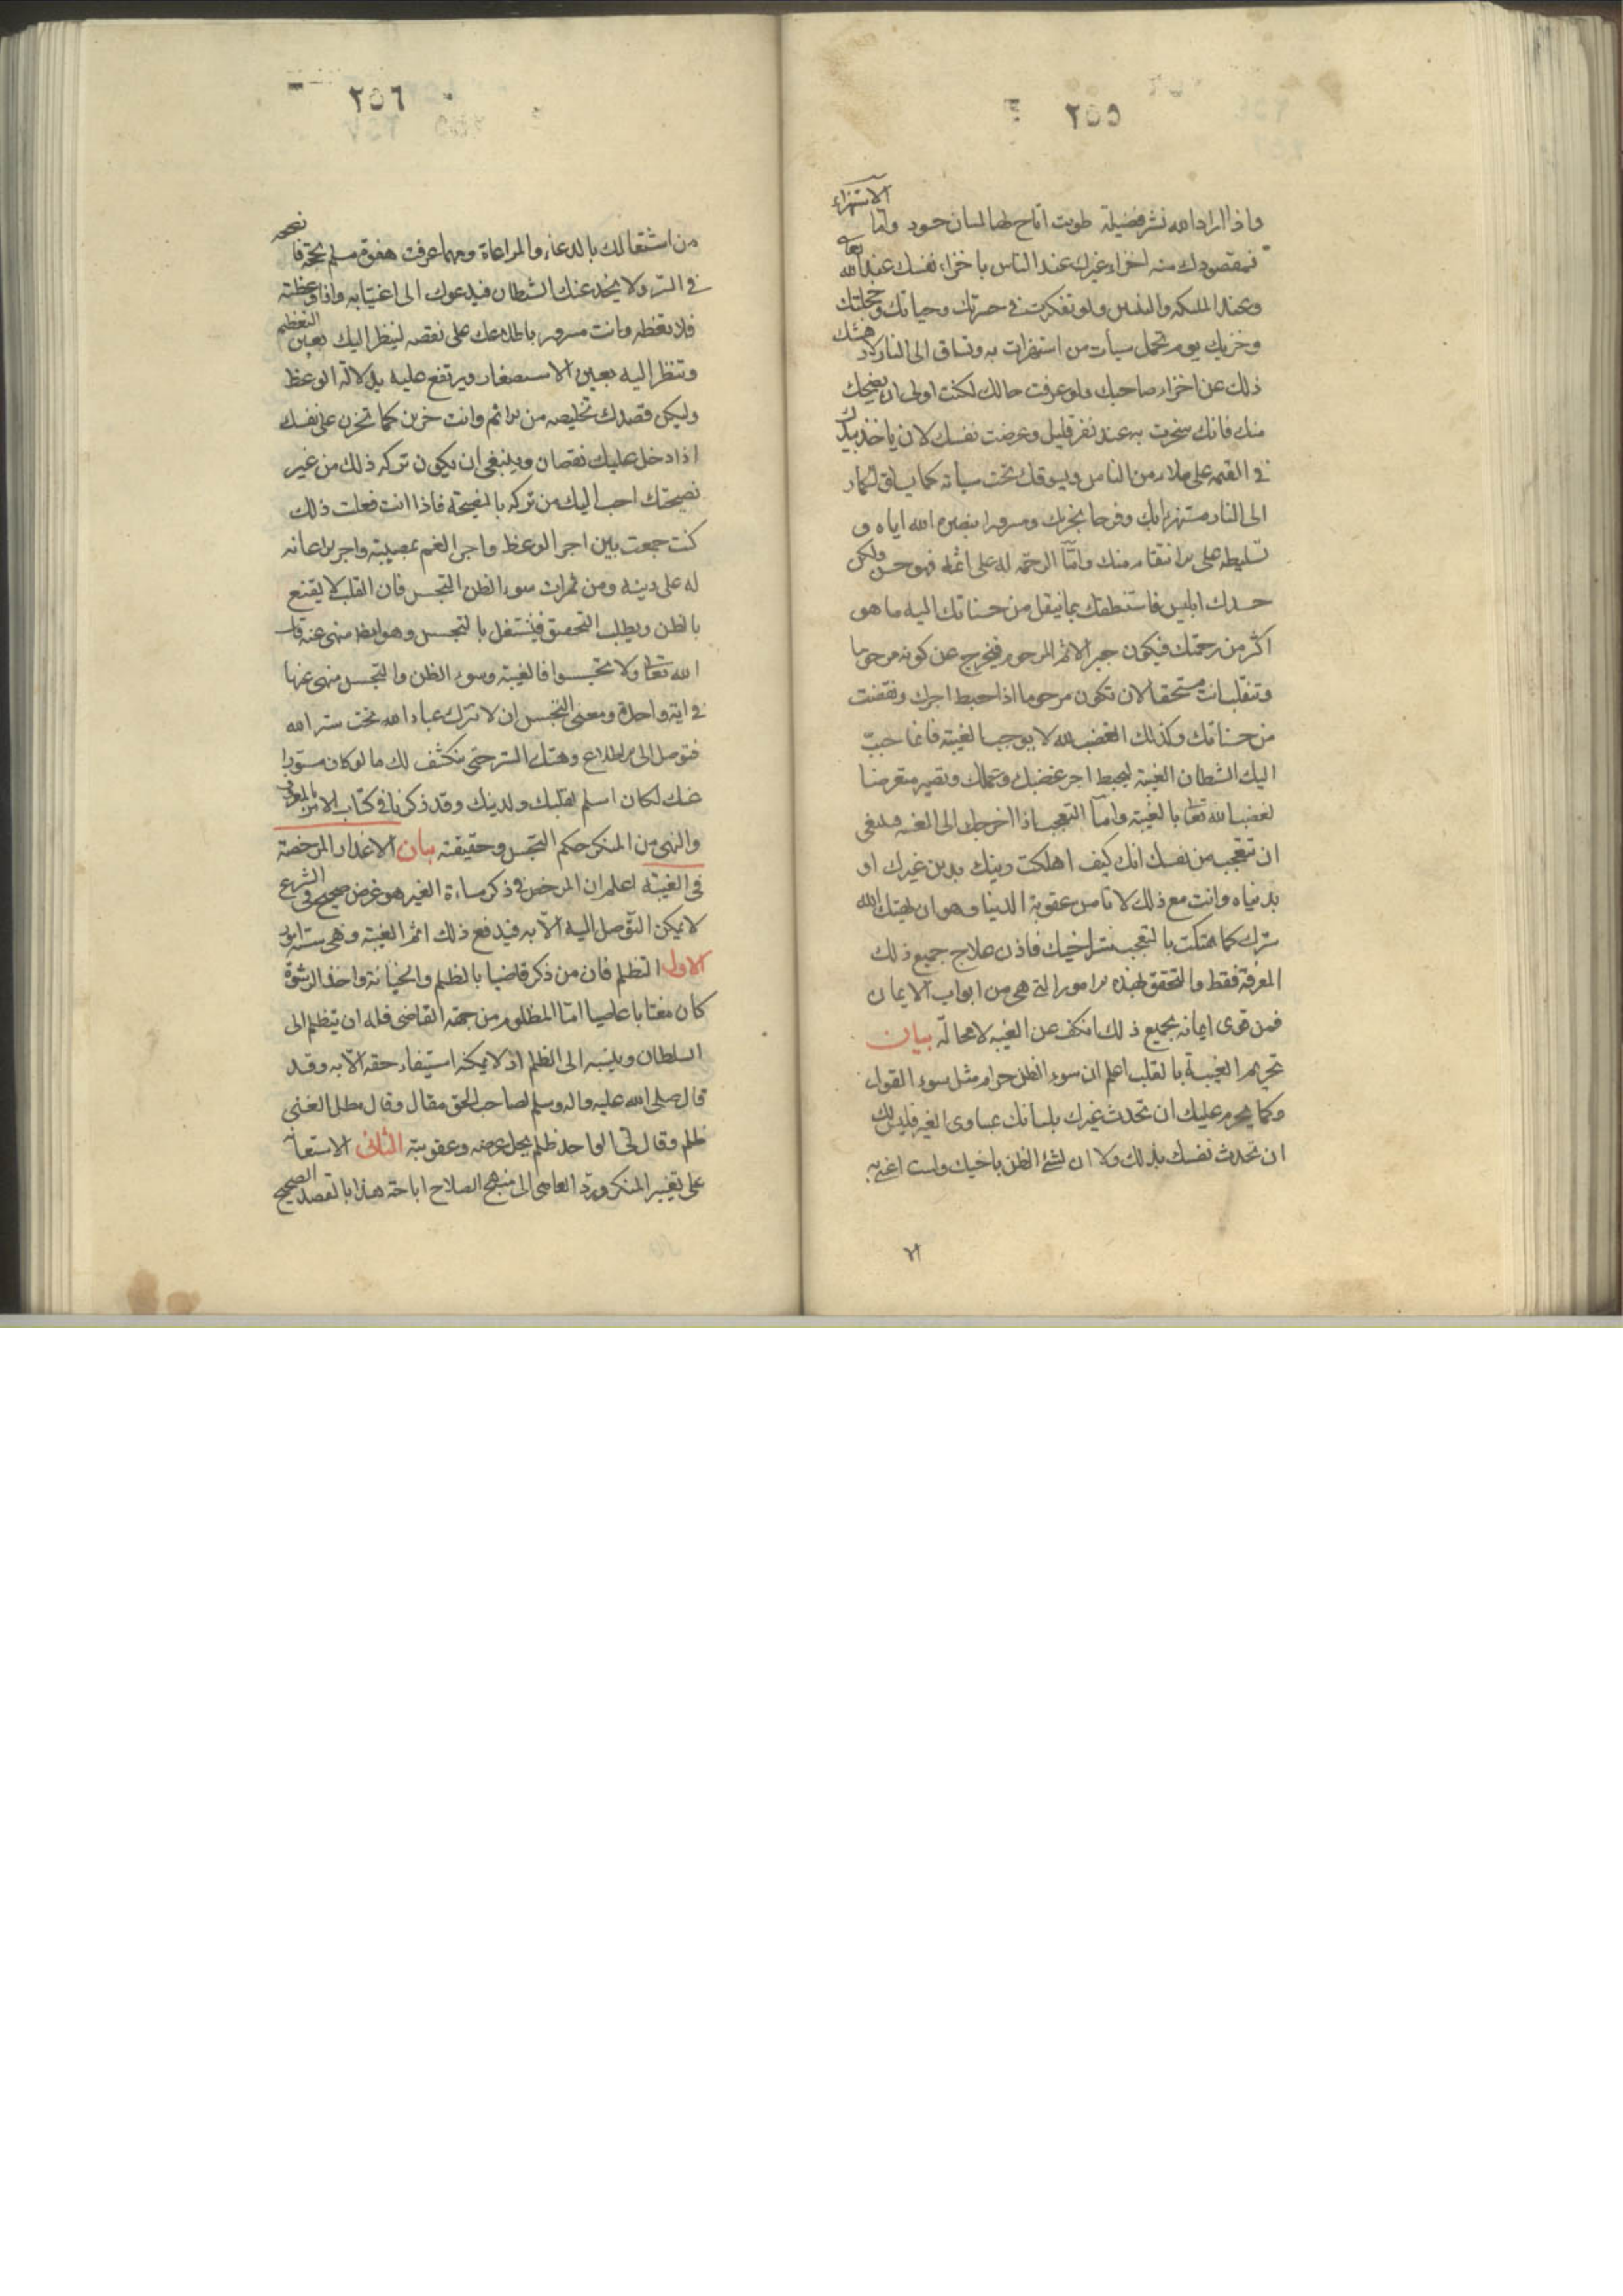 ٢٥٥
واذا اراد الله نشر فضيلة طويت اتاح لها لسان حسود واما الاستهزاء
فمقصودك منه اخزاء غيرك عند الناس باخزاء نفسك عند الله تعالى
وعند الملئكة والنبيين ولو تفكرت في حسرتك وحيائك وخجلتك
وخزيك يوم تحمل سيأت من استهزات به وتساق الى النار لادهشك
ذلك عن اخزاء صاحبك ولو عرفت حالك لكنت اولى ان يضحك
منك فانك سخرت به عند نفر قليل وعرضت نفسك لان ياخذ بيدك
في القيمة على ملاء من الناس ويسوقك تحت سيأته كما يساق الحمار
الى النار مستهزئا بك وفرحا بخزيك ومسرورا بنصرة الله اياه و
تسليطه على الانتقام منك واما الرحمة له على اثمه فهو حسن ولكن
حسدك ابليس فاستنطقك بما ينقل من حسناتك اليه ما هو
اكثر من رحمتك فيكون جبر الاثم المرحوم فيخرج عن كونه مرحوما
وتنقلب انت مستحقا لان تكون مرحوما اذا حبط اجرك ونقضت
من حسناتك وكذلك الغضب لله لا يوجب الغيبة فانما حبب
اليك الشطان الغيبة ليحبط اجر غضبك وعملك وتصير متعرضا
لغضب الله تعالى بالغيبة واما التعجب اذا اخرجك الى الغيبة فينبغي
ان تتعجب من نفسك انك كيف اهلكت دينك بدين غيرك او
بدنياه وانت مع ذلك لا تامن عقوبة الدنيا وهو ان يهتك الله
سترك كما هتكت بالتعجب ستر اخيك فاذن علاج جميع ذلك
المعرفة فقط والتحقق بهذه الامور التي هي من ابواب الايمان
فمن قوى ايمانه بجميع ذلك انكف عن الغيبة لا محالة بيان
تحريم الغيبة بالقلب اعلم ان سوء الظن حرام مثل سوء القول
وكما يحرم عليك ان تحدث غيرك بلسانك بمساوى الغير فليس لك
ان تحدث نفسك بذلك ولا ان تسئ الظن باخيك ولست اعني به
٢٥٦
من اشتغالك بالدعاء والمراعاة ومهما عرفت هفوة مسلم بحجة فانصحه
في السر ولا يخدعنك الشطان فيدعوك الى اغتيابه واذا وعظته
فلا تعظه وانت مسرور باطلاعك على نقصه لينظر اليك بعين التعظيم
وتنظر اليه بعين الاستصغار ويرتفع عليه بدلالة الوعظ
وليكن قصدك تخليصه من الاثم وانت حزين كما تحزن على نفسك
اذا دخل عليك نقصان وينبغي ان يكون تركه ذلك من غير
نصيحتك احب اليك من تركه بالنصيحة فاذا انت فعلت ذلك
كنت جمعت بين اجر الوعظ واجر الغم بمصيبته واجر الاعانة
له على دينه ومن ثمرات سوء الظن التجسس فان القلب لا يقنع
بالظن ويطلب التحقيق فيشتغل بالتجسس وهو ايضا منهى عنه قال
الله تعالى ولا تجسسوا فالغيبة وسوء الظن والتجسس منهى عنها
في اية واحدة ومعنى التجسس ان لا تترك عباد الله تحت ستر الله
فتوصل الى الاطلاع وهتك الستر حتى ينكشف لك ما لو كان مستورا
عنك لكان اسلم لقلبك ولدينك وقد ذكرنا في كتاب الامر بالمعروف
والنهى من المنكر حكم التجسس وحقيقته بيان الاعذار المرخصة
في الغيبة اعلم ان المرخص في ذكر مساءة الغير هو غرض صحيح في الشرع
لا يمكن التوصل اليه الا به فيدفع ذلك اثم الغيبة وهي ستة امور
الاول التظلم فان من ذكر قاضيا بالظلم والخيانة واخذ الرشوة
كان مغتابا عاصيا اما المظلوم من جهة القاضى فله ان يتظلم الى
السلطان وينسبه الى الظلم اذ لا يمكنه استيفاء حقه الا به وقد
قال صلى الله عليه واله وسلم لصاحب الحق مقال وقال مطل الغنى
ظلم وقال لي الواجد ظلم يحل عرضه وعقوبته الثاني الاستعانة
على تغيير المنكر ورد العاصى الى منهج الصلاح اباحة هذا بالقصد الصحيح